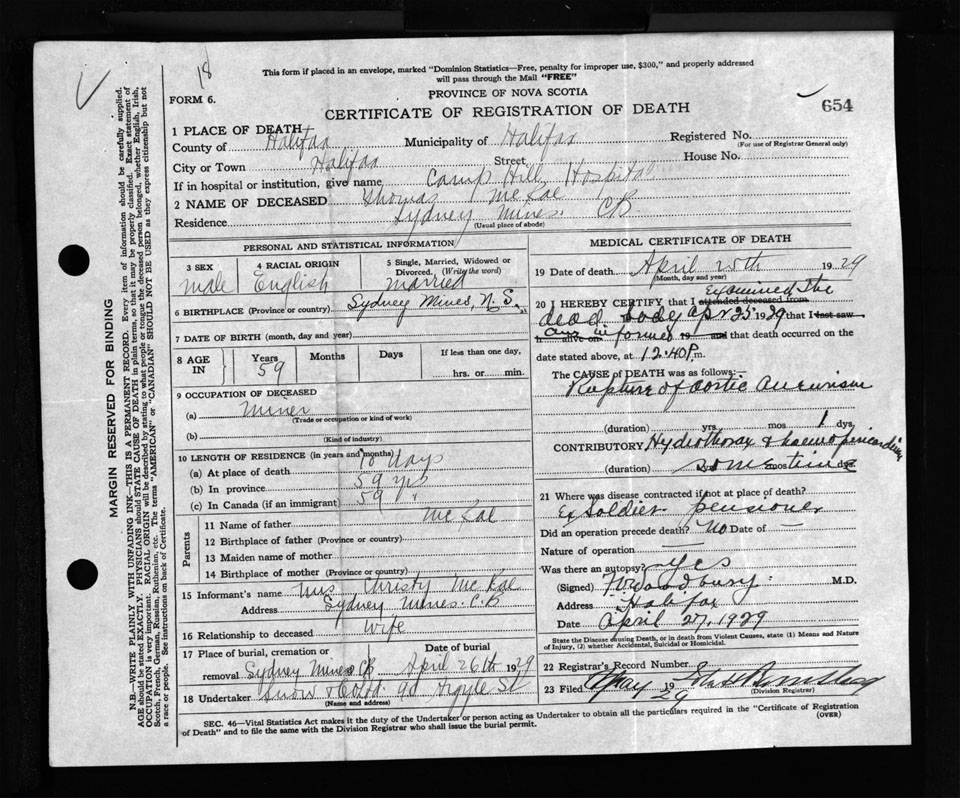 18
This form if placed in an envelope, marked "Dominion Statistics—Free, penalty for improper use, $300," and properly addressed
will pass through the Mail "FREE"
FORM 6.
PROVINCE OF NOVA SCOTIA
CERTIFICATE OF REGISTRATION OF DEATH
654
1 PLACE OF DEATH
County of Halifax Municipality of Halifax Registered No.
(For use of Registrar General only)
City or Town Halifax Street House No.
If in hospital or institution, give name Camp Hill Hospital
2 NAME OF DECEASED Thomas McKae
Residence Sydney Mines. CB
(Usual place of abode)
PERSONAL AND STATISTICAL INFORMATION
3 SEX
male
4 RACIAL ORIGIN
English
5 Single, Married, Widowed or
Divorced. (Write the word)
married
6 BIRTHPLACE (Province or country) Sydney Mines, N.S.
7 DATE OF BIRTH (month, day and year)
8 AGE IN Years Months Days If less than one day,
59 hrs. or min.
9 OCCUPATION OF DECEASED
(a) Miner
(Trade or occupation or kind of work)
(b)
(Kind of industry)
10 LENGTH OF RESIDENCE (in years and months)
(a) At place of death 10 days
(b) In province 59 yrs
(c) In Canada (if an immigrant) 59 "
Parents
11 Name of father McKae
12 Birthplace of father (Province or country)
13 Maiden name of mother
14 Birthplace of mother (Province or country)
15 Informant's name Mrs Christy McKae
Address Sydney Mines. C.B
16 Relationship to deceased Wife
17 Place of burial, cremation or Date of burial
removal Sydney Mines CB April 26th 1929
18 Undertaker Snow & Co Ltd. 90 Argyle St
(Name and address)
MEDICAL CERTIFICATE OF DEATH
19 Date of death April 25th 1929
(Month, day and year)
examined the
20 I HEREBY CERTIFY, that I attended deceased from
dead body Apr 25 1929 that I last saw
h alive on am informed 19 and that death occurred on the
date stated above, at 12.40 P.m.
The CAUSE OF DEATH was as follows:—
Rupture of aortic aneurism
(duration) yrs mos 1 dys.
CONTRIBUTORY Hydrothorax & haemopericardium
(duration) yrs mos dys
sometime
21 Where was disease contracted if not at place of death?
Ex Soldier pensioner
Did an operation precede death? No Date of —
Nature of operation —
Was there an autopsy? Yes
(Signed) Woodbury M.D.
Address Halifax
Date April 27, 1929
State the Disease causing Death, or in death from Violent Causes, state (1) Means and Nature
of Injury, (2) whether Accidental, Suicidal or Homicidal.
22 Registrar's Record Number
23 Filed May 19 29
(Division Registrar)
SEC. 46—Vital Statistics Act makes it the duty of the Undertaker or person acting as Undertaker to obtain all the particulars required in the "Certificate of Registration
of Death" and to file the same with the Division Registrar who shall issue the burial permit.
(OVER)
MARGIN RESERVED FOR BINDING
N.B.—WRITE PLAINLY, WITH UNFADING INK—THIS IS A PERMANENT RECORD. Every item of information should be carefully supplied.
AGE should be stated EXACTLY. PHYSICIANS should STATE CAUSE OF DEATH in plain terms, so that it may be properly classified. Exact statement of
OCCUPATION is very important. RACIAL ORIGIN will be described by stating to what people or tongue the deceased person belonged, whether English, Irish,
Scotch, French, German, Russian, Ruthenian, etc. The terms "AMERICAN" or "CANADIAN" SHOULD NOT BE USED as they express citizenship but not
a race or people. See instructions on back of Certificate.